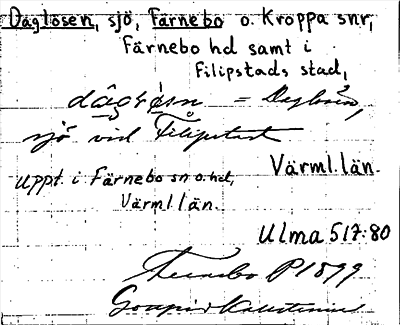 Daglösen, sjö, Färnebo o. Kroppa snr,
Färnebo hd samt i
Filipstads stad,
= Daglösen,
sjö vid Filipstad
Värml. län.
uppt. i Färnebo sn o. hd,
Värml. län.
Ulma 517:80
Fernebo P 1899